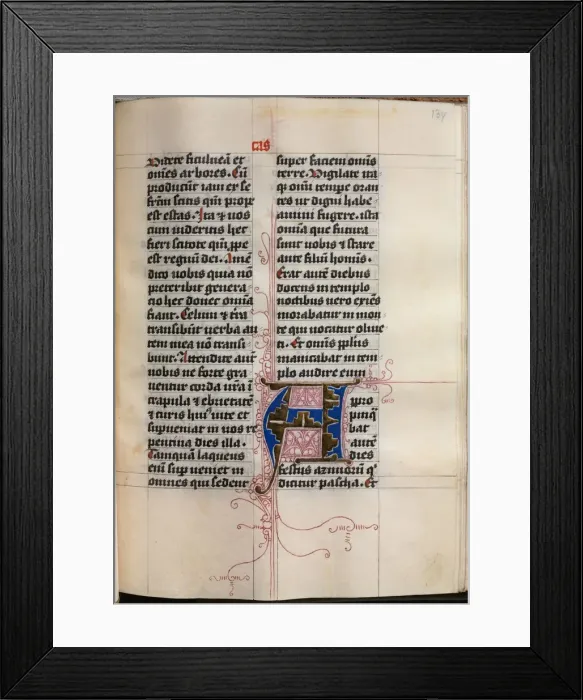 cas
Videte ficulneā et
om̄es arbores. Cū
producūt iam ex se
fr̄m scitis qm̄ prope
est estas. Ita ⁊ uos
cum uideritis hec
fieri scitote qm̄ ꝓpe
est regnū dei. Amē
dico uobis quia nō
preteribit genera
cio hec donec om̄ia
fiant. Celum ⁊ t̄ra
transibūt uerba au
tem mea nō transi
bunt. Attendite aut̄
uobis ne forte gra
uentur corda ur̄a ī
crapula ⁊ ebrietate
⁊ curis huiꝰ uite et
supueniat in uos re
pentina dies illa.
Tanquā laqueus
enī supueniet in
omnes qui sedent
super faciem om̄is
terre. Vigilate ita
qꝫ om̄i tempe oran
tes ut digni habe
amini fugere. ista
omīa que futura
sunt uobis ⁊ stare
ante filiū homīs.
Erat autē diebus
docens in templo
noctibus uero exiēs
morabatur in mon
te qui uocatur oliue
ti. Et om̄is pplūs
manicabat in tem
plo audire eum
A ppro
pinq̄
bat
autē
dies
festus azimorū q̄
dicitur pascha. Et